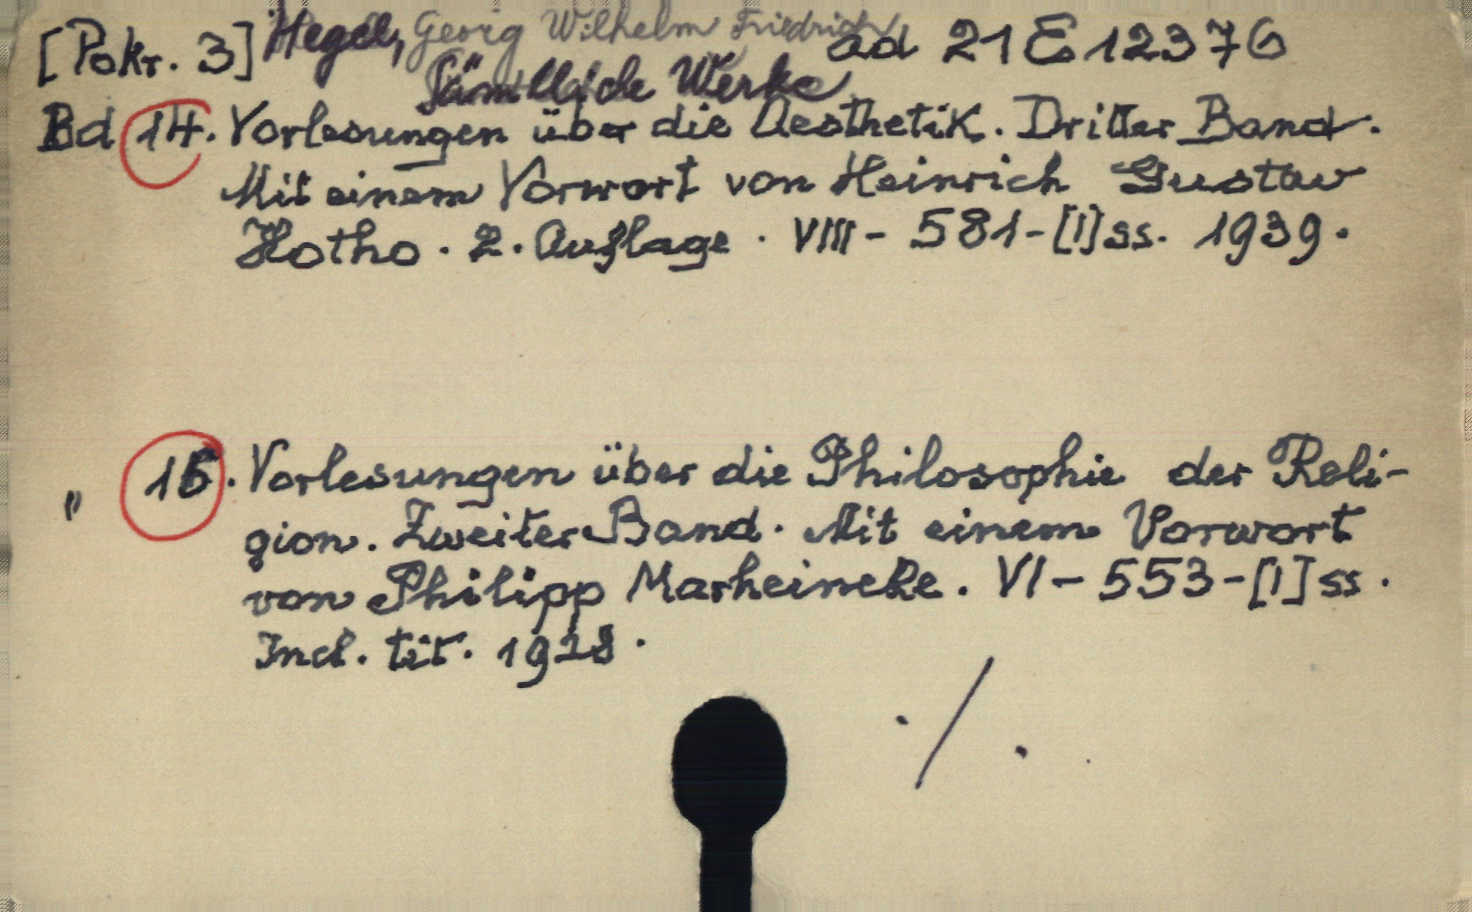 [Pokr. 3] Hegel, Georg Wilhelm Friedrich ad 21 E 12376
Sämtliche Werke
Bd 14. Vorlesungen über die Aesthetik. Dritter Band.
Mit einem Vorwort von Heinrich Gustav
Hotho. 2. Auflage. VIII - 581 - [1] ss. 1939.
" 15. Vorlesungen über die Philosophie der Reli-
gion. Zweiter Band. Mit einem Vorwort
von Philipp Marheineke. VI - 553 - [1] ss.
Incl. tit. 1928.
./.